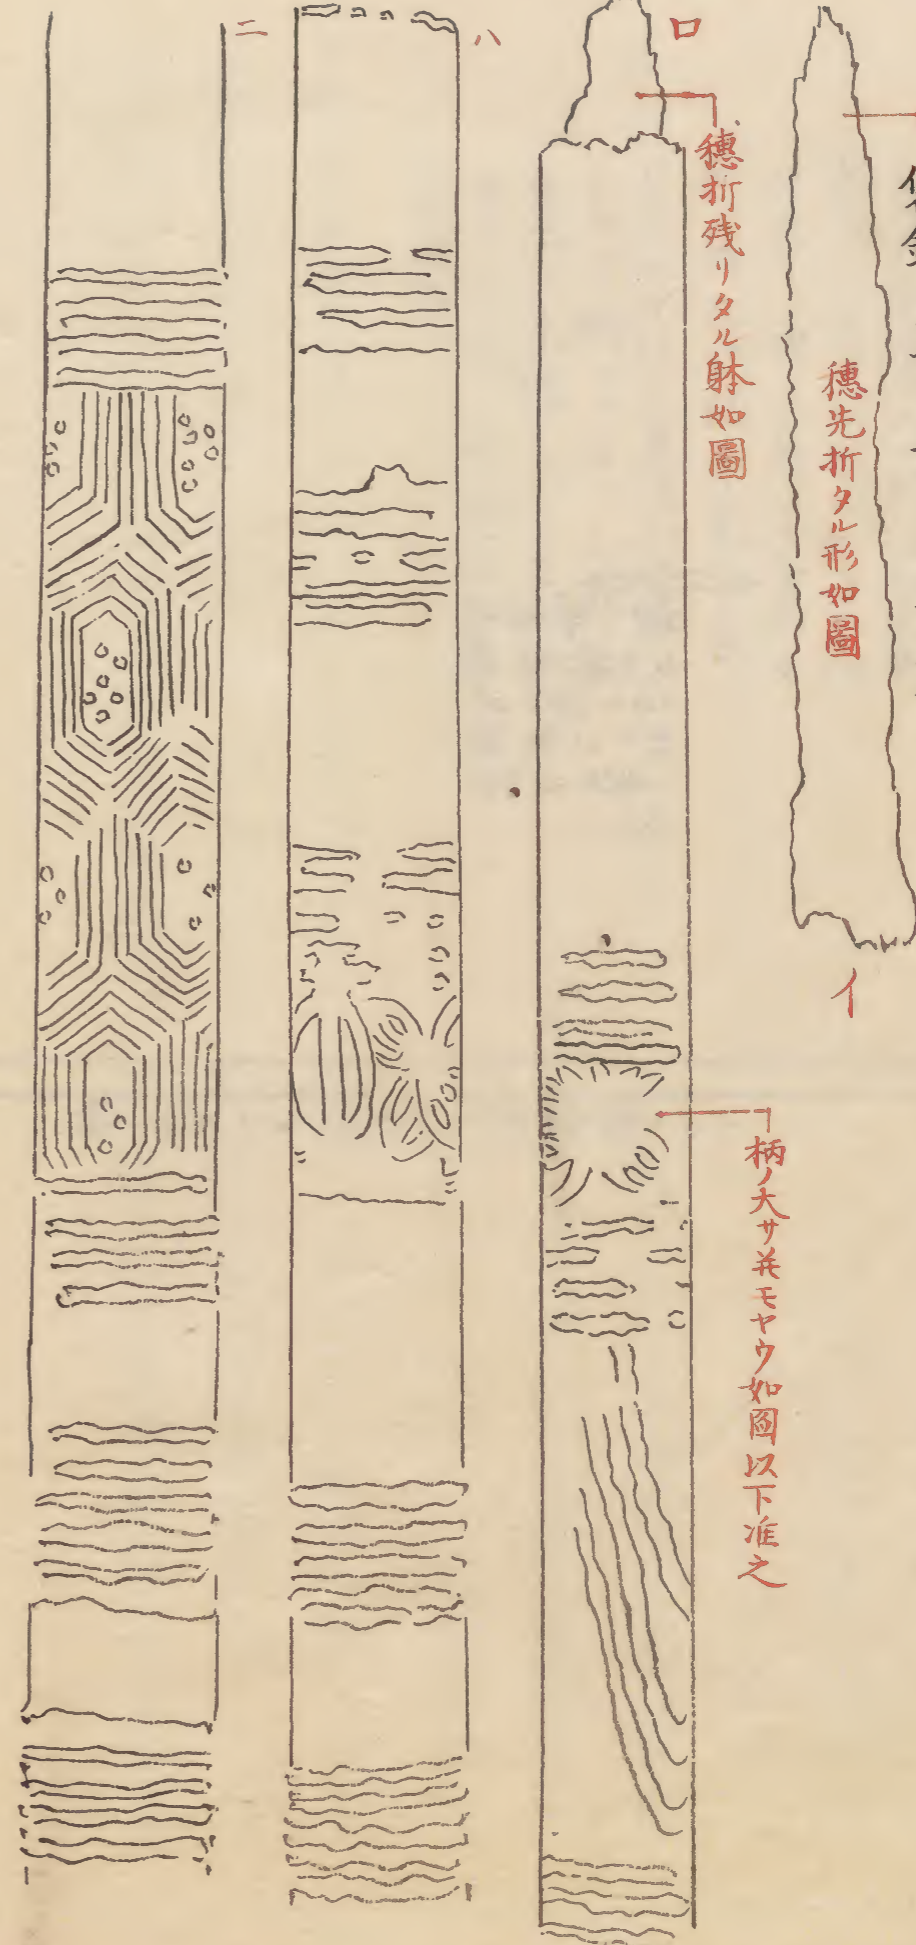 穂先折タル形如圖
イ
ロ
穂折残リタル躰如圖
柄ノ大サ并モヤウ如圖以下准之
ハ
ニ